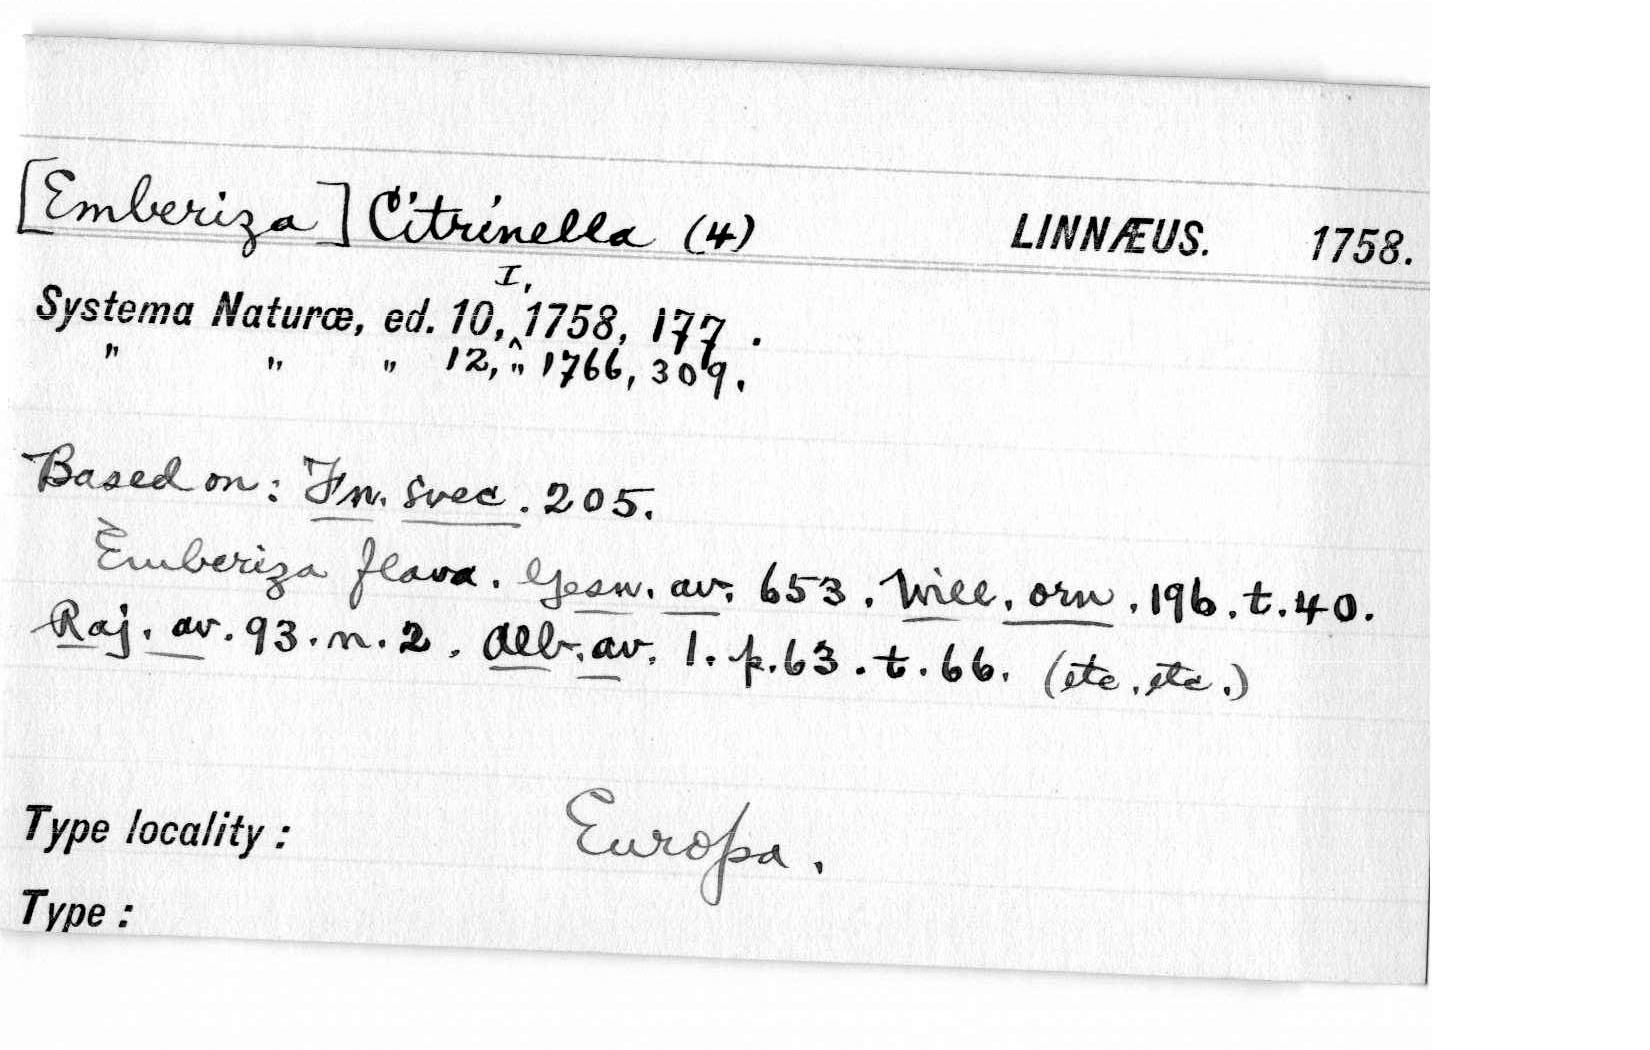 [Emberiza] Citrinella (4) LINNÆUS. 1758.
I,
Systema Naturæ, ed. 10,^ 1758, 177.
" " " 12, " 1766, 309.
Based on: Fn. svec. 205.
Emberiza flava. Gesn. av. 653. Will. orn. 196. t. 40.
Raj. av. 93. n. 2. Alb. av. 1. p. 63. t. 66. (etc. etc.)
Type locality: Europa.
Type: